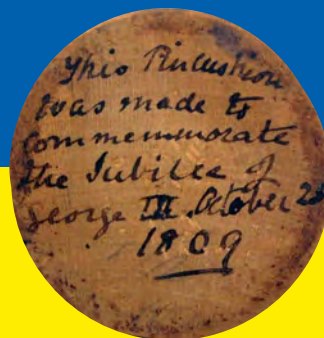 This Pincushion
was made to
commemmorate
the Jubilee of
George III. October 25
1809